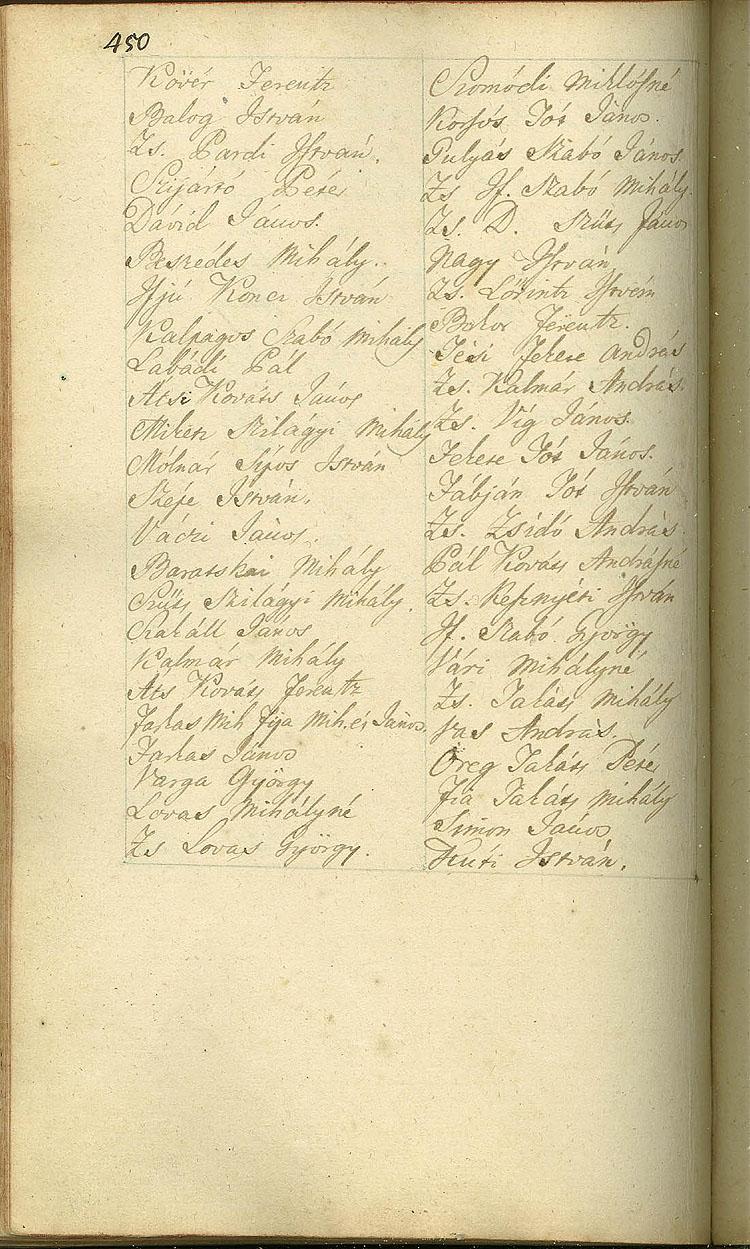 450
Kövér Ferentz
Balog István
Zs. Pardi István.
Szijártó Péter
Dávid János.
Beszedes Mihály.
Ifjú Koncz István
Kalpagos Szabó Mihály
Labádi Pál
Átsi Kováts János
Miketz Szilágyi Mihály
Mólnár Sipos István
Szépe István.
Váczi János.
Baratskai Mihály
Szűts Szilágyi Mihály.
Szakáll János
Kalmár Mihály
Áts Kováts Ferentz
Farkas Mih fija Mih. és János.
Farkas János
Varga György
Lovas Mihályné
Zs Lovas György.
Szomódi Miklósné
Korsós Tót János.
Gulyás Szabó János.
Zs If. Szabó Mihály.
Zs. D. Szűts János
Nagy István
Zs. Lőrintz István
Bokor Ferentz.
Tési Fekete András
Zs. Kalmár András.
Zs. Víg János.
Fekete Tót János.
Fábján Tót István
Zs. Zsidó András
Pál Kováts Andrásné
Zs. Kesznyéti István
If. Szabó György
Vári Mihályné
Zs. Takáts Mihály
Vas András.
Öreg Takáts Péter
fia Takáts Mihály
Simon János
Kuti István.